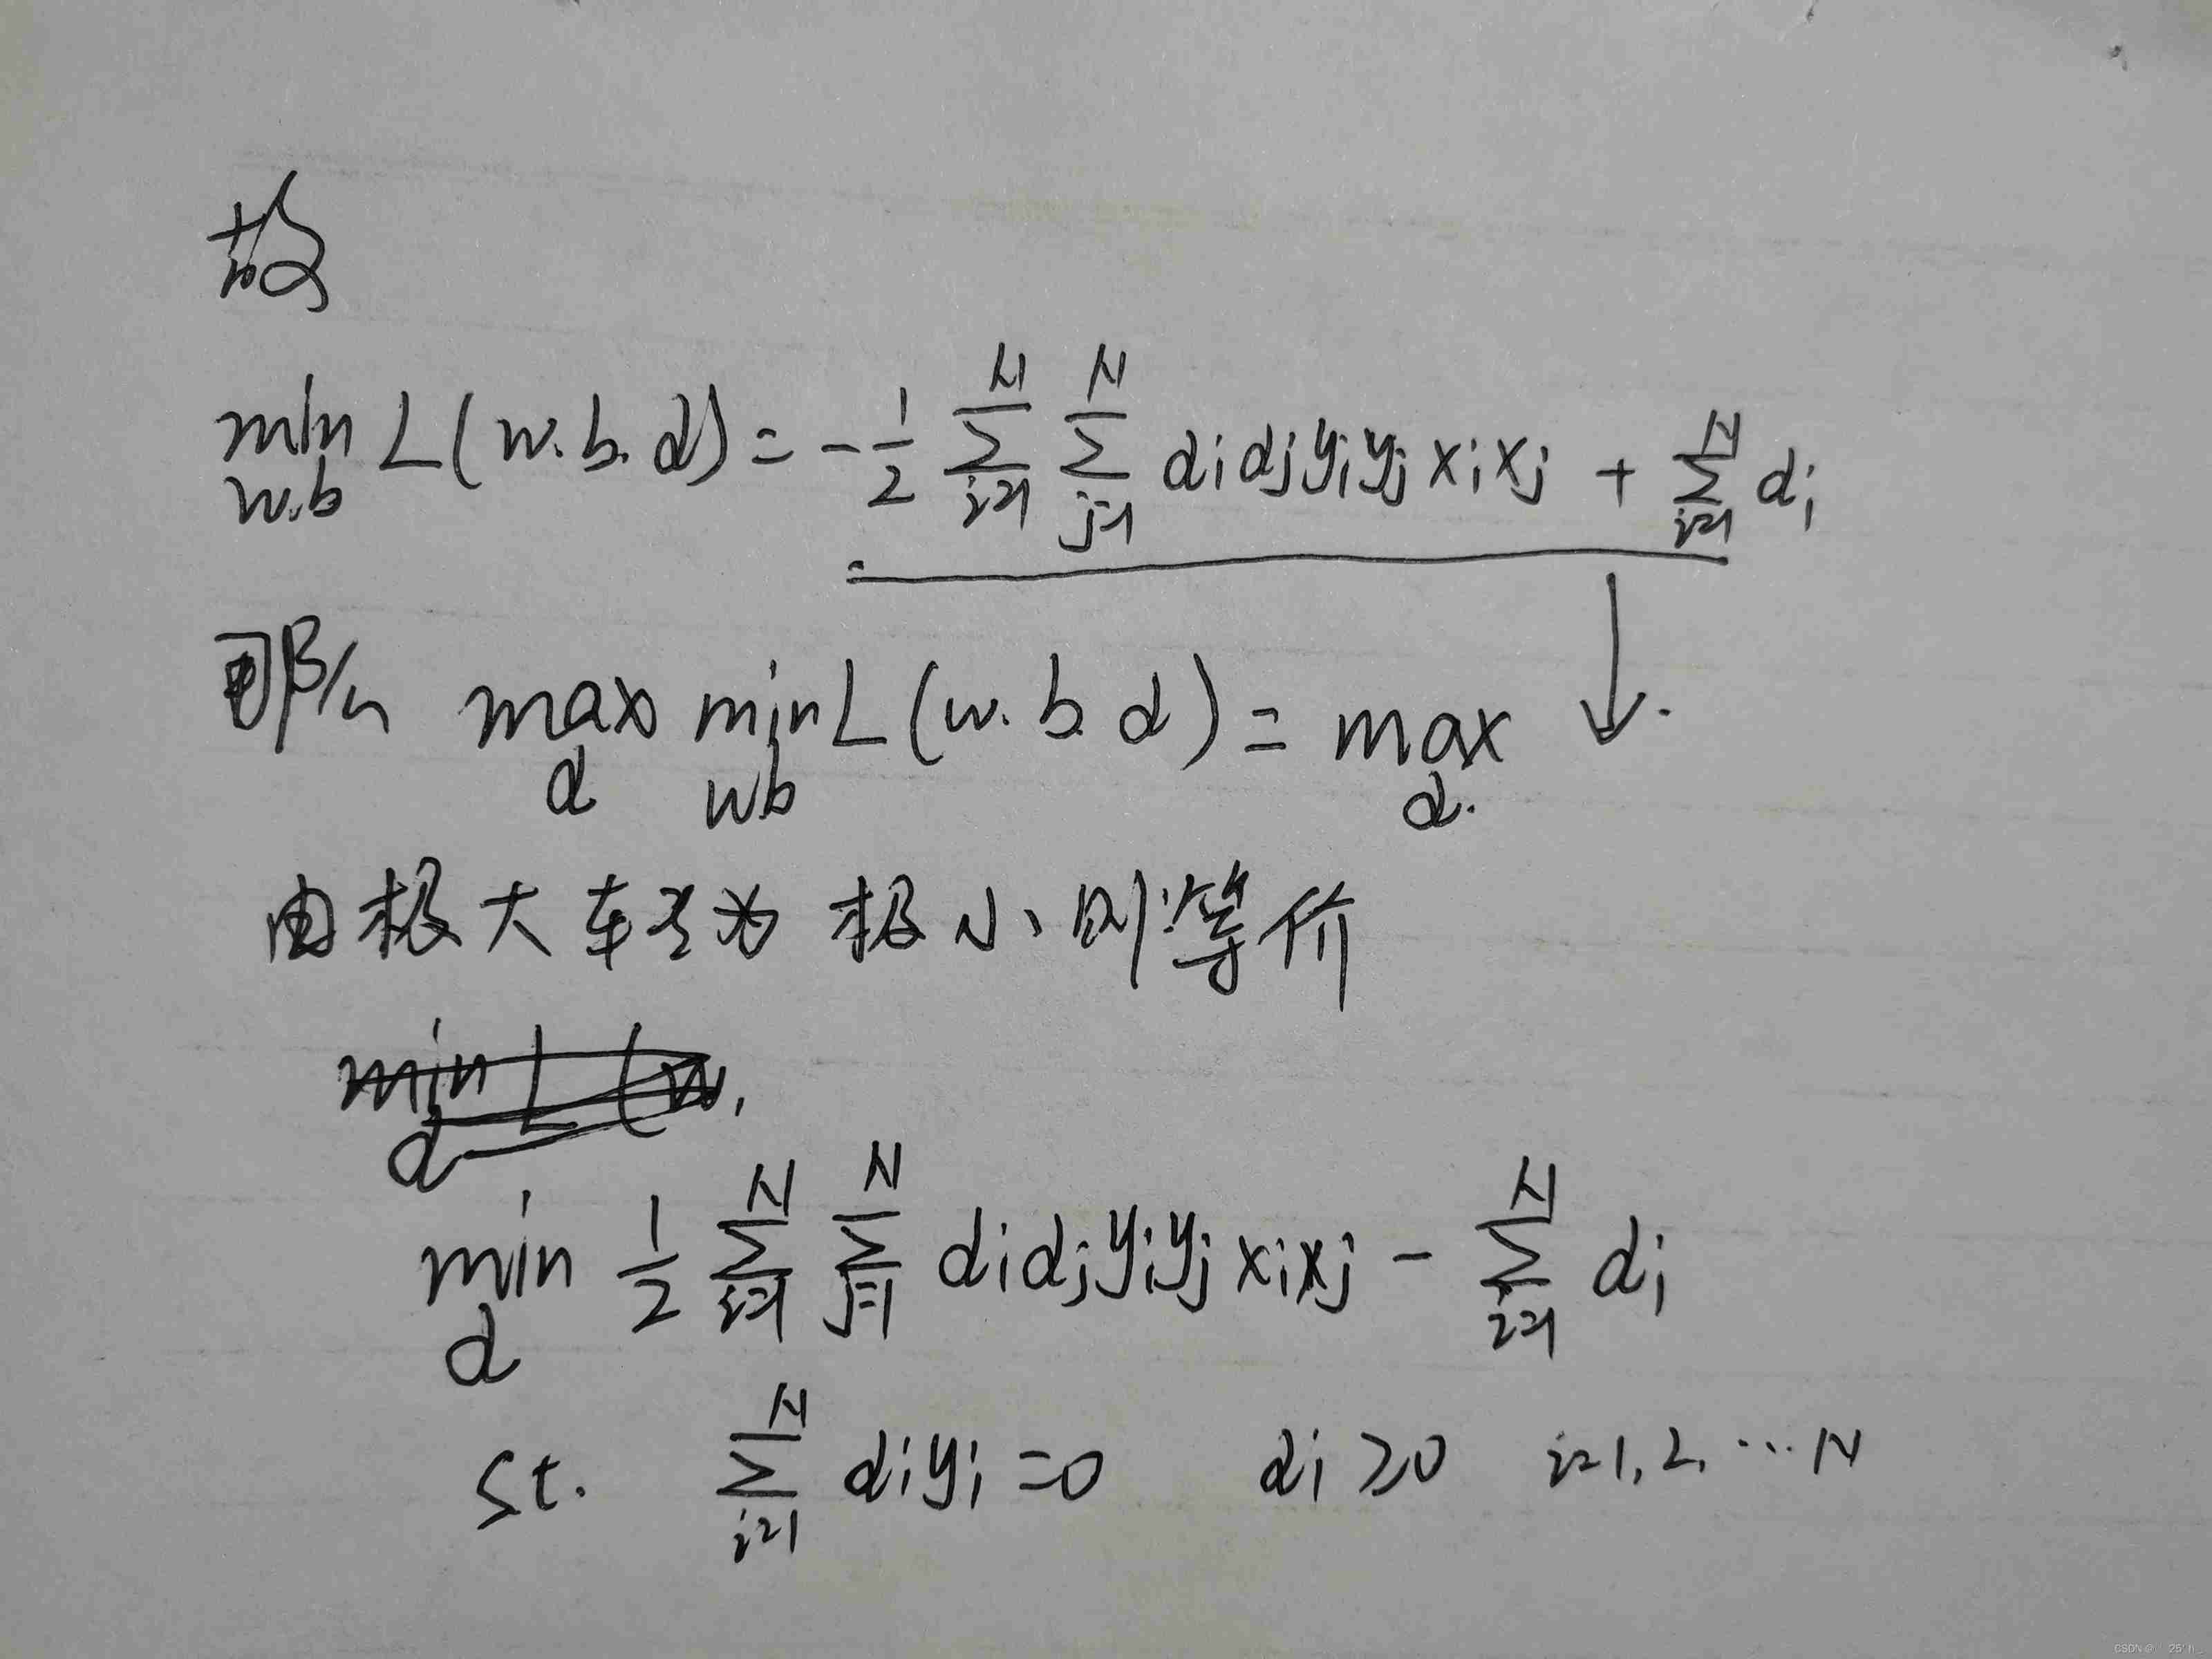 故
min L(w.b.α) = -1/2 ∑_{i=1}^{N} ∑_{j=1}^{N} αiαjyiyjxixj + ∑_{i=1}^{N} αi
w.b
那么 max min L(w.b α) = max ↓.
α w.b α.
由极大转为极小则等价
min 1/2 ∑_{i=1}^{N} ∑_{j=1}^{N} αiαjyiyjxixj - ∑_{i=1}^{N} αi
α
st. ∑_{i=1}^{N} αiyi =0 αi ≥0 i=1,2,…N
CSDN @